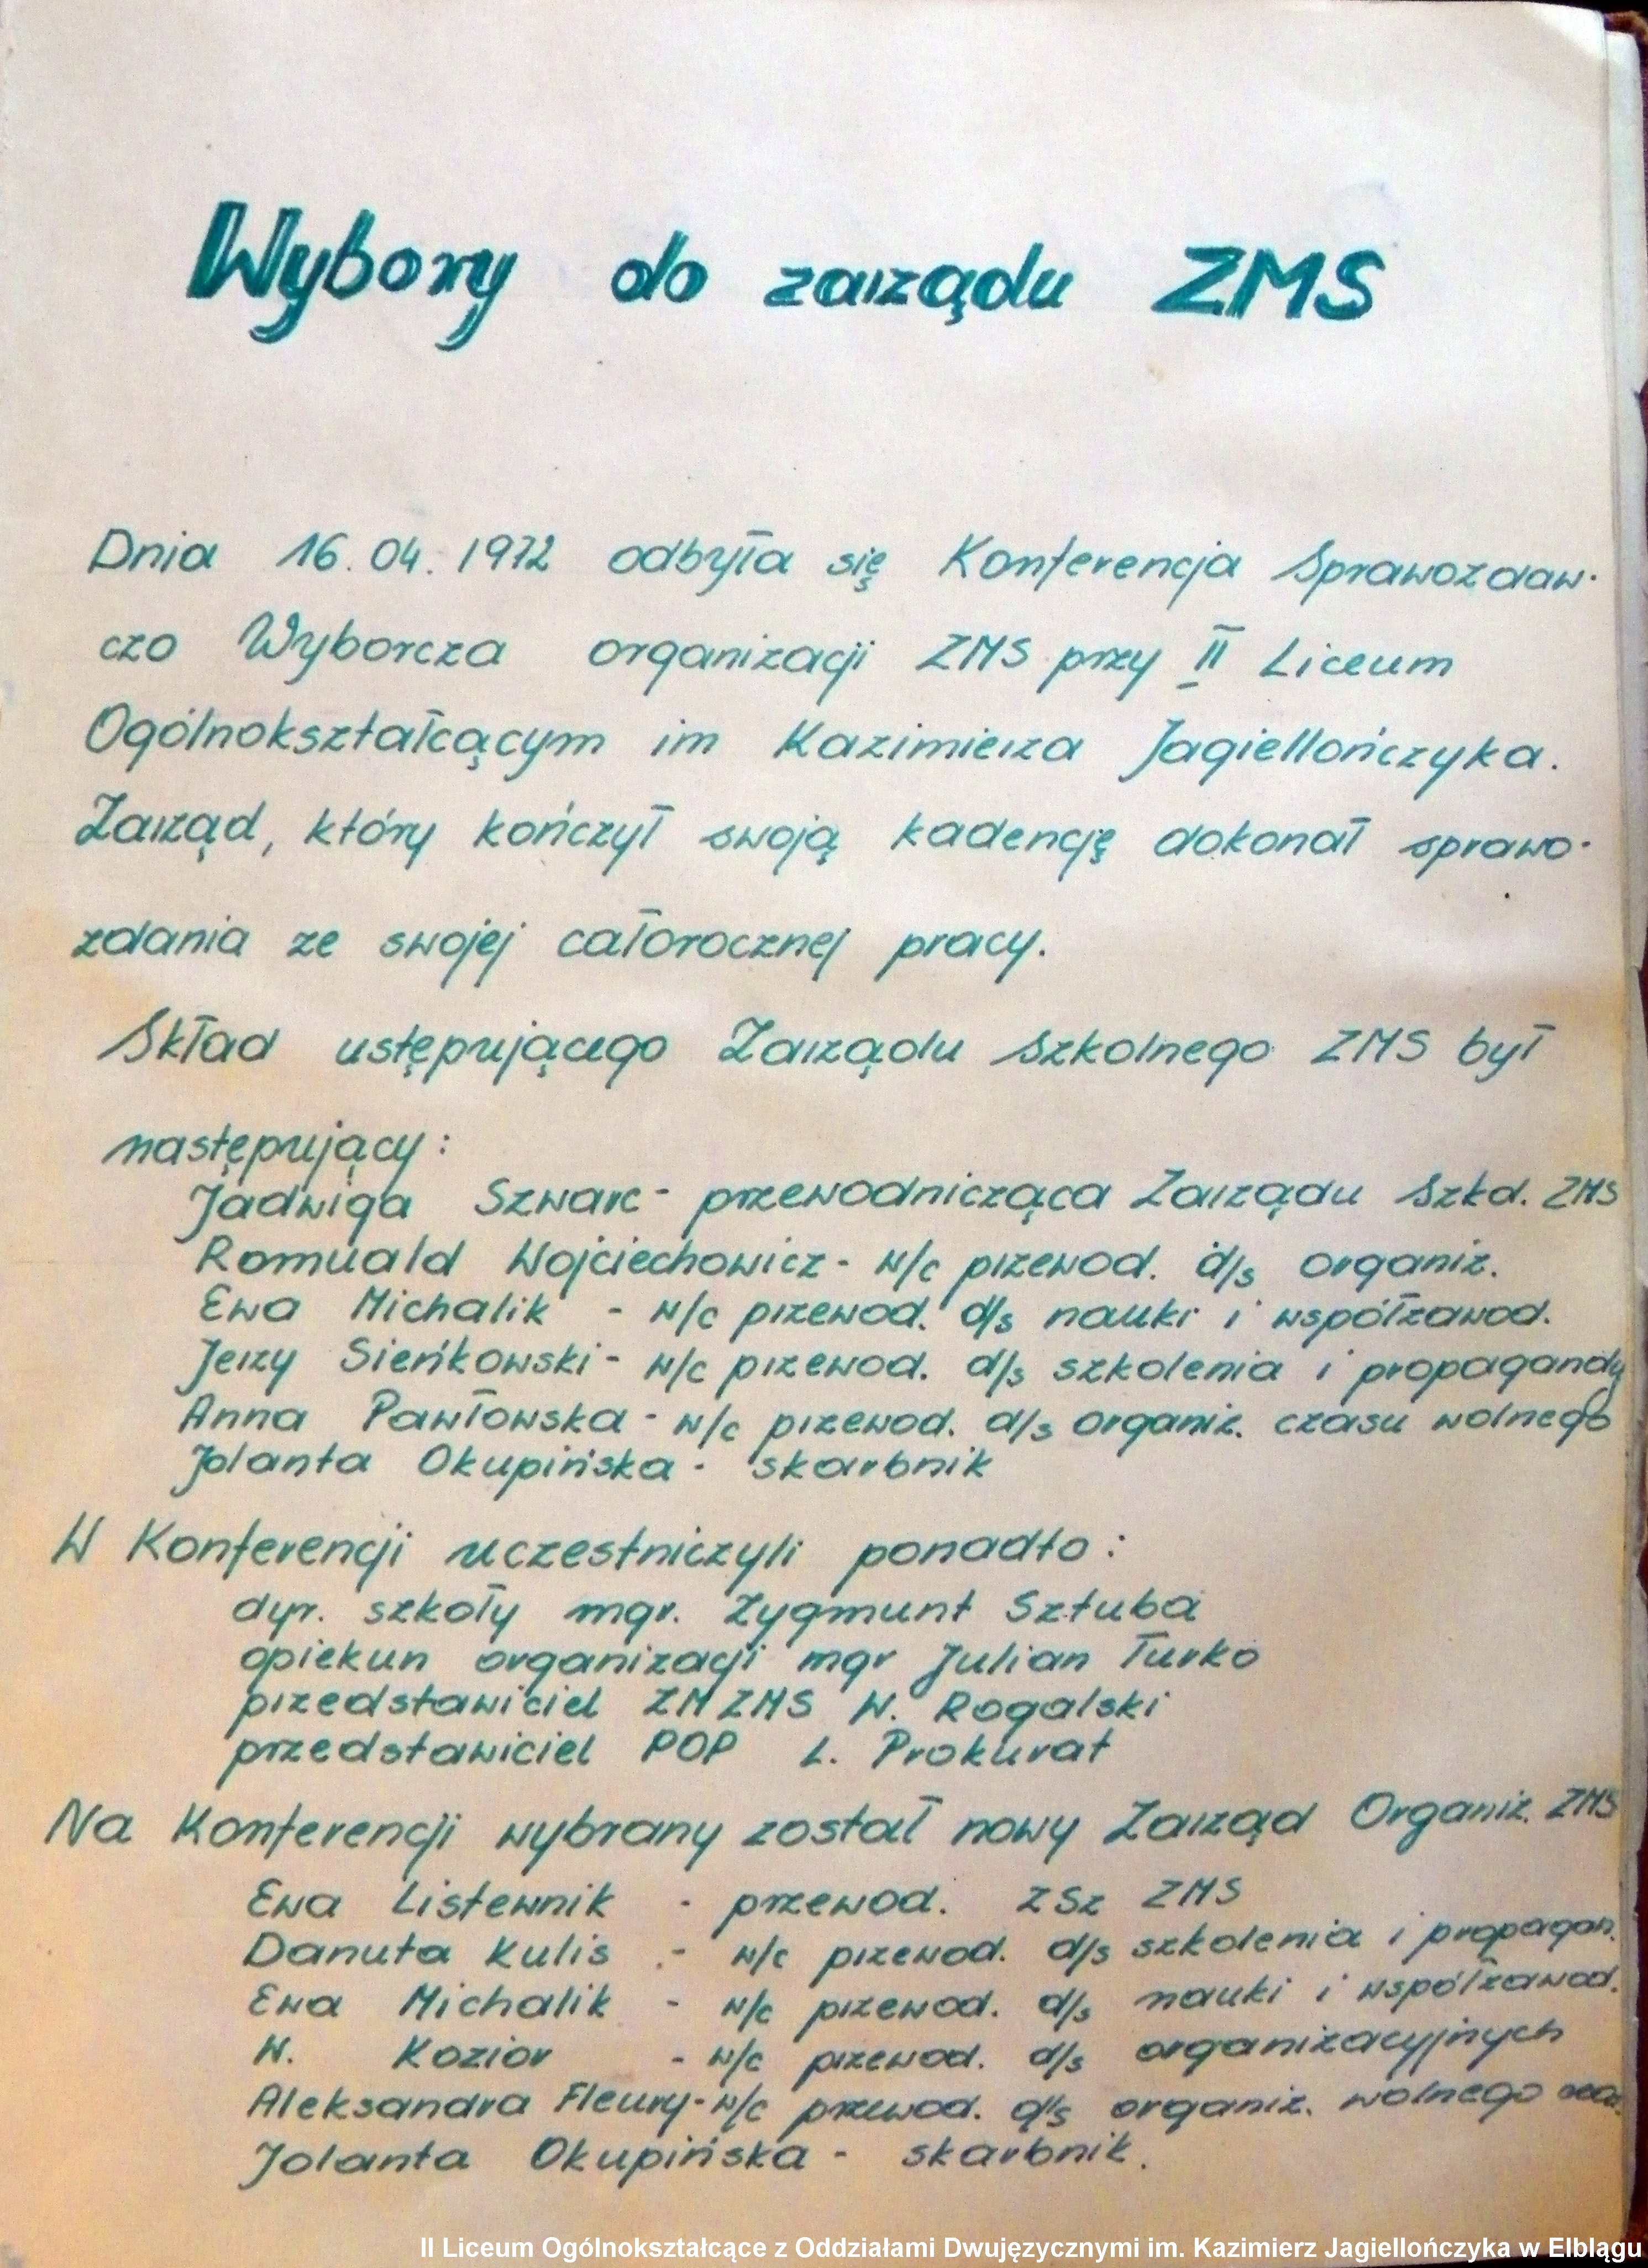 Wybory do zarządu ZMS
Dnia 16.04.1972 odbyła się Konferencja Sprawozdaw-
czo Wyborcza organizacji ZMS przy II Liceum
Ogólnokształcącym im Kazimierza Jagiellończyka.
Zarząd, który kończył swoją kadencję dokonał sprawo-
zdania ze swojej całorocznej pracy.
Skład ustępującego Zarządu Szkolnego ZMS był
następujący:
Jadwiga Szwarc - przewodnicząca Zarządu Szkol. ZMS
Romuald Wojciechowicz - w/c przewod. d/s organiz.
Ewa Michalik - w/c przewod. d/s nauki i współzawod.
Jerzy Sieńkowski - w/c przewod. d/s szkolenia i propagandy
Anna Pawłowska - w/c przewod. d/s organiz. czasu wolnego
Jolanta Okupińska - skarbnik
W Konferencji uczestniczyli ponadto:
dyr. szkoły mgr. Zygmunt Sztuba
opiekun organizacji mgr Julian Turko
przedstawiciel ZM ZMS W. Rogalski
przedstawiciel POP L. Prokurat
Na Konferencji wybrany został nowy Zarząd Organiz. ZMS
Ewa Listewnik - przewod. ZSz ZMS
Danuta Kulis - w/c przewod. d/s szkolenia i propagan.
Ewa Michalik - w/c przewod. d/s nauki i współzawod.
W. Kozior - w/c przewod. d/s organizacyjnych
Aleksandra Fleury - w/c przewod. d/s organiz. wolnego
Jolanta Okupińska - skarbnik.
II Liceum Ogólnokształcące z Oddziałami Dwujęzycznymi im. Kazimierz Jagiellończyka w Elblągu